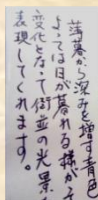 薄暮から深みを増す青色
よっては日が暮れる様がそ
変化となって街並の光景
表現してくれます。